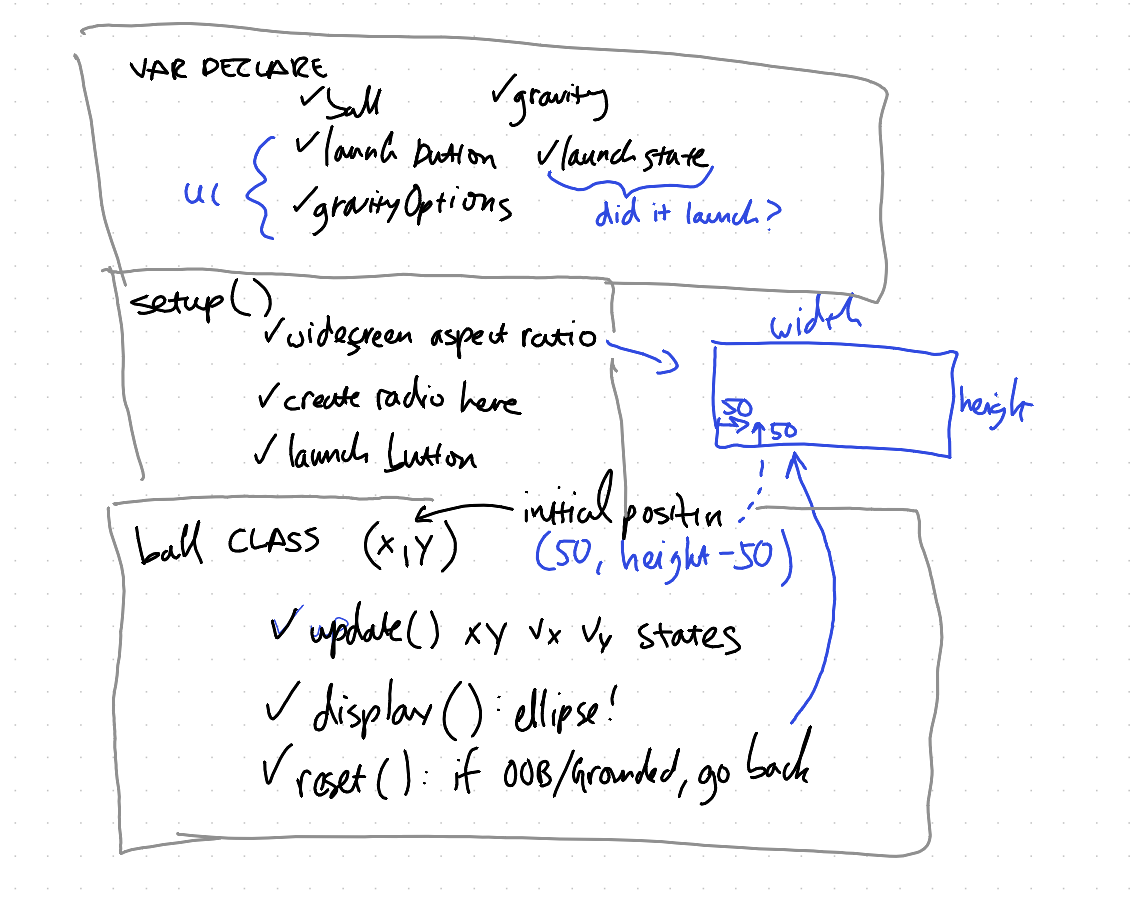 VAR DECLARE
✓ ball ✓ gravity
✓ launch button ✓ launch state
UI { ✓ gravityOptions
did it launch?
setup()
✓ widescreen aspect ratio
✓ create radio here
✓ launch button
width
height
50
50
initial positin
ball CLASS (x,y)
(50, height-50)
✓ update() xy vx vy states
✓ display(): ellipse!
✓ reset(): if OOB/Grounded, go back